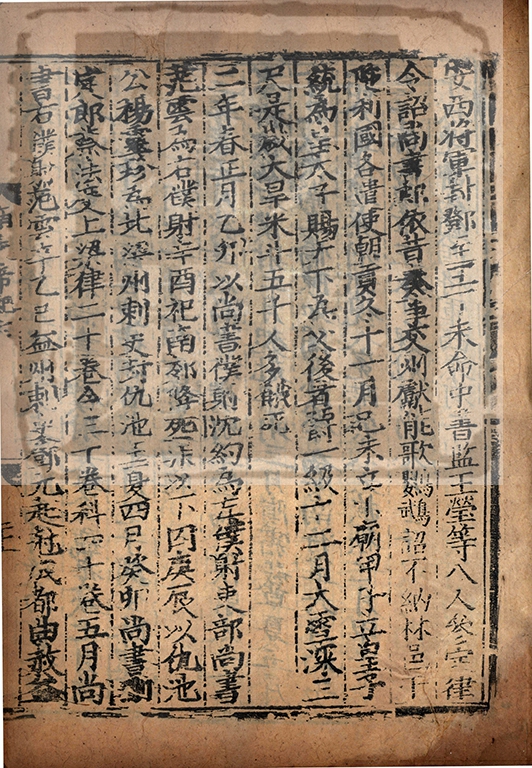 安西將軍封鄧至王丁未命中書監王瑩等八人參定律
令詔尚書郎依昔奏事交州獻能歌鸚鵡詔不納林邑干
陁利國各遣使朝貢冬十一月己未立小廟甲子立皇子
統為皇太子賜天下為父後者爵一級十二月大雪深三
尺是歲大旱米斗五千人多餓死
三年春正月乙卯以尚書僕射沈約為左僕射吏部尚書
范雲為右僕射辛酉祀南郊降死罪以下囚庚辰以仇池
公楊靈珍為北梁州刺史封仇池王夏四月癸卯尚書刪
定郎蔡法度上梁律二十卷令三十卷科四十卷五月尚
書右僕射范雲卒乙巳益州刺史鄧元起剋成都曲赦益